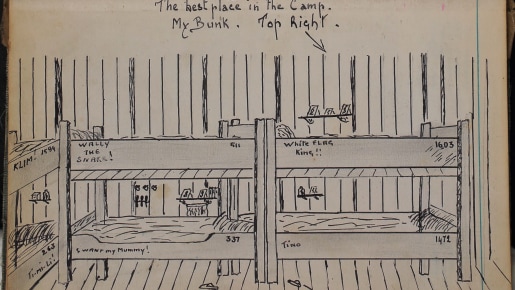 The best place in the Camp.
My Bunk. Top Right.
KLIM. 1594
WALLY
THE
SNAGG!
511
White FLAG
King!!
1603
263
I WANT my Mummy!
537
Tino
1472